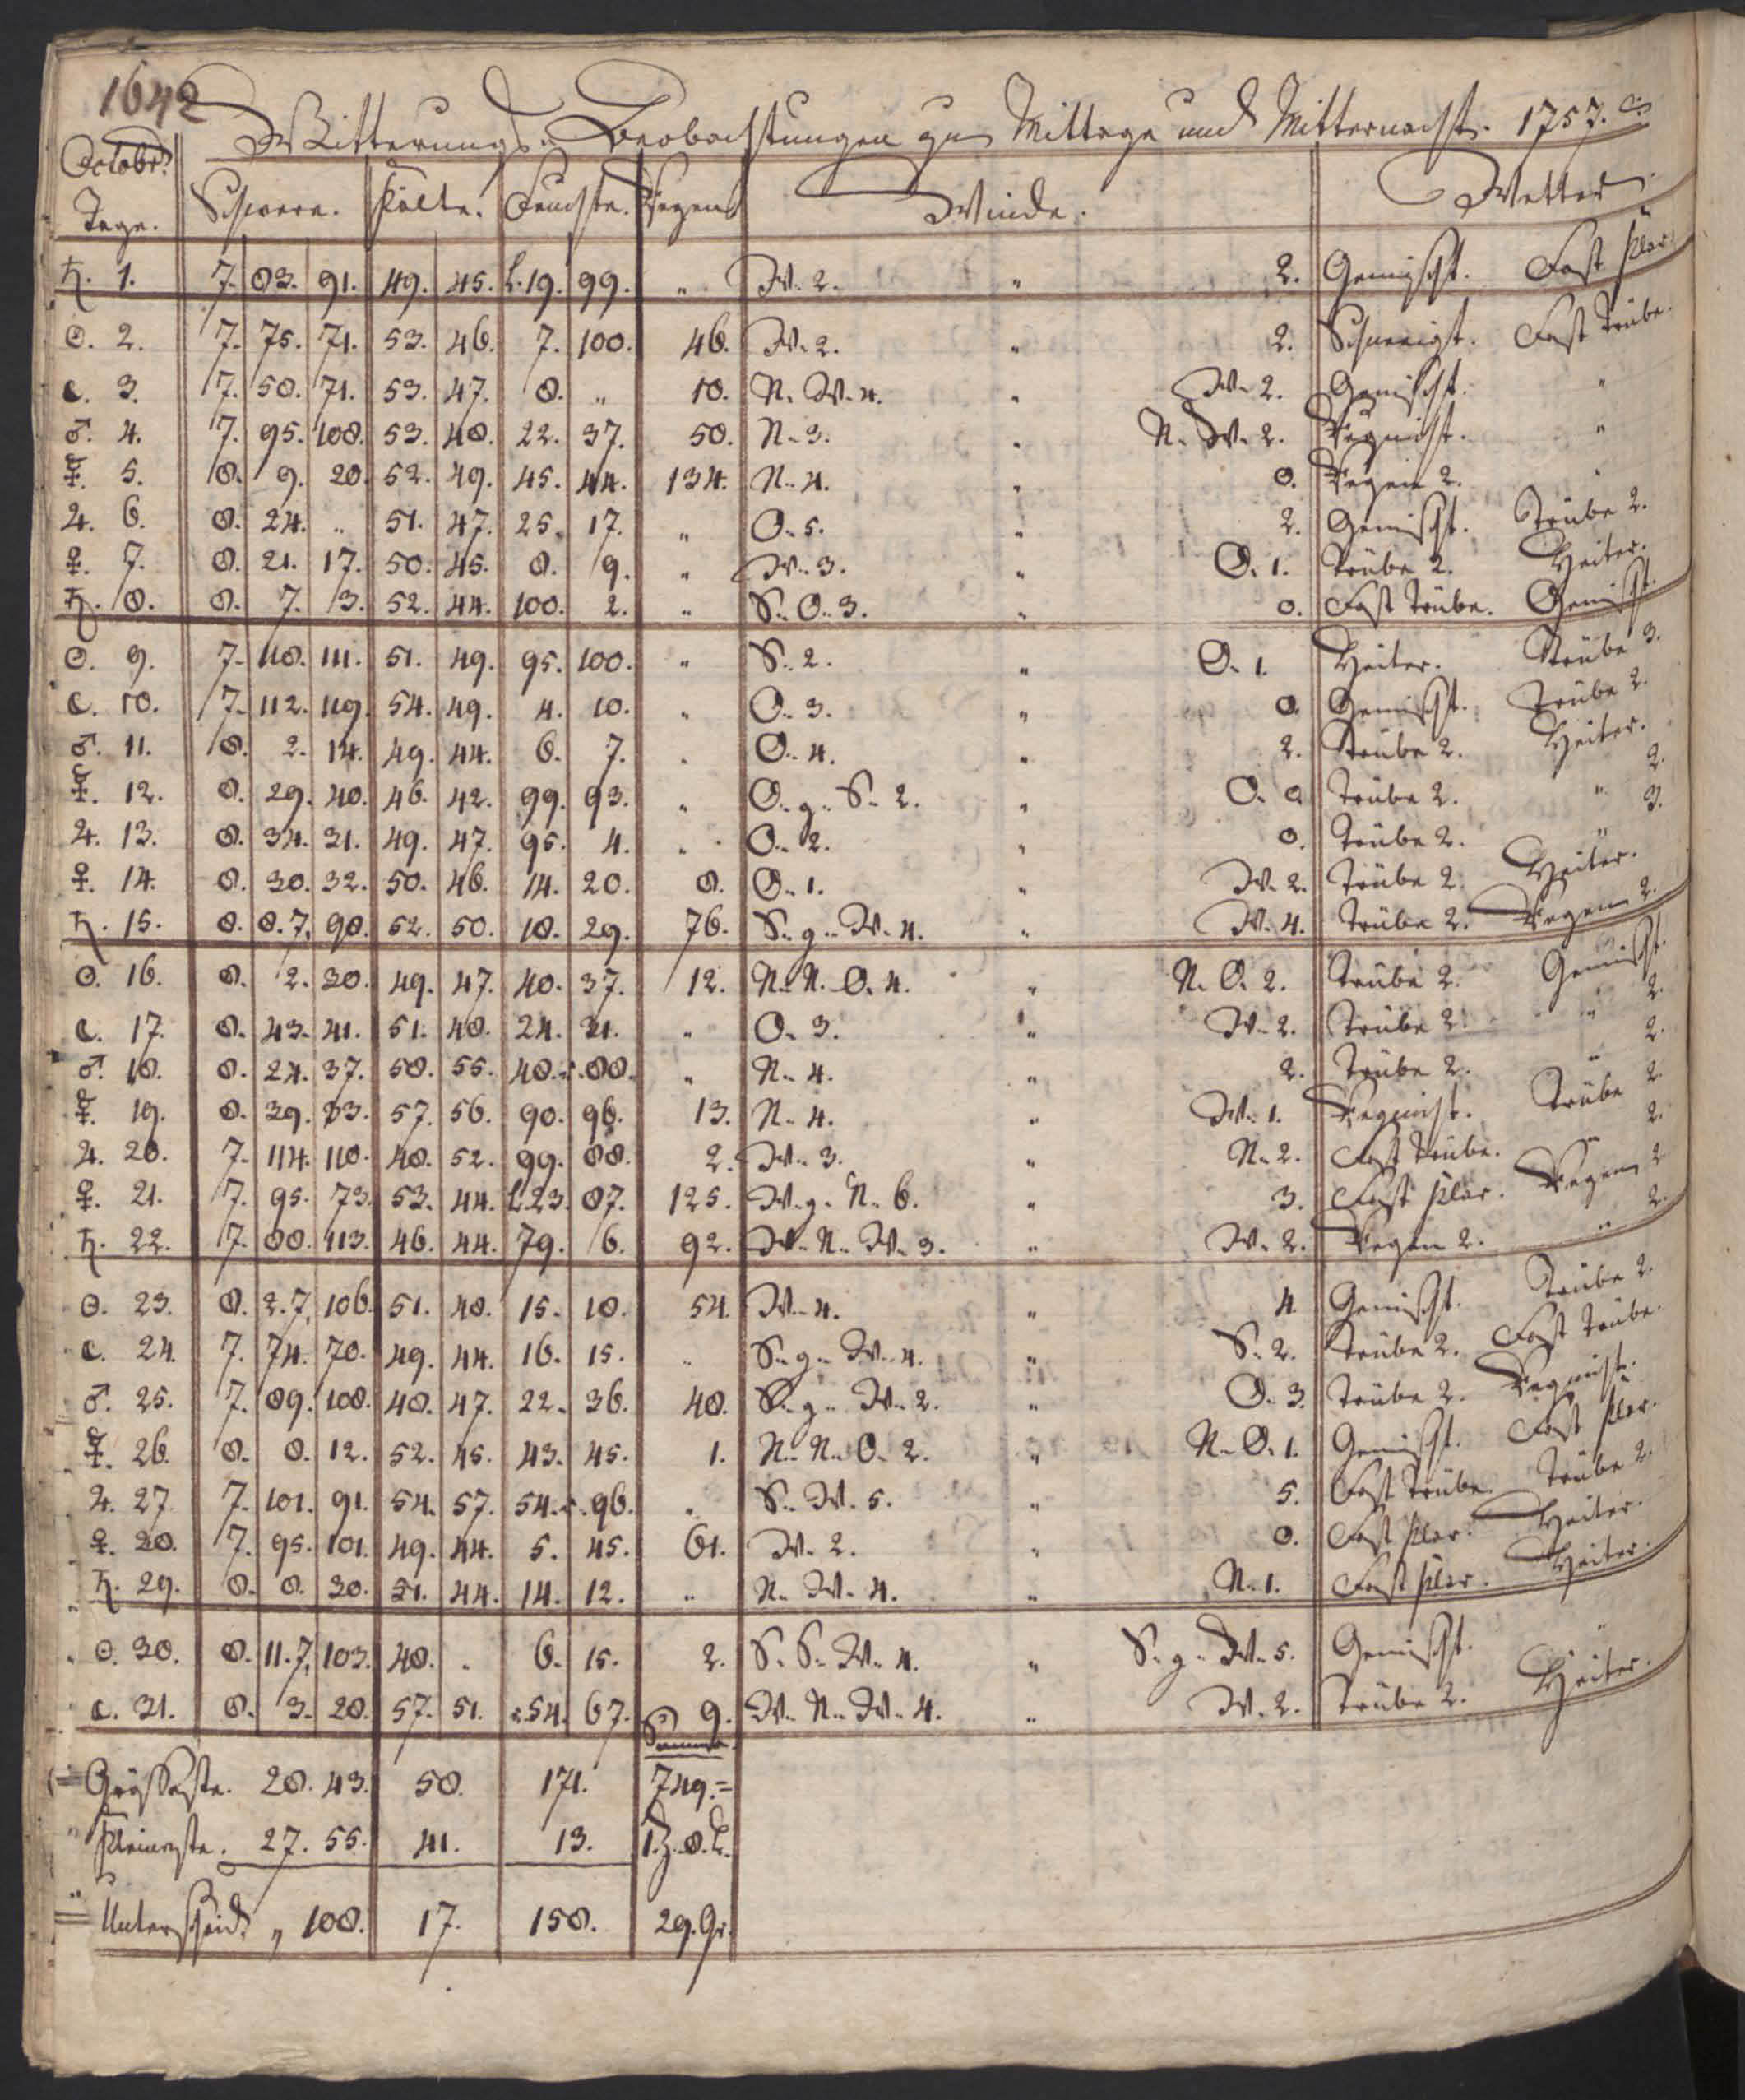 1642
Witterungs-Beobachtungen zu Mittage und Mitternacht. 1757.
Octobr.
Tage. Schwere. Kälte. Feuchte. Regen Winde. Wetter.
♄. 1. 7. 83. 91. 49. 45. L.19. 99. " W. 2. " 2. Gemischt. Fast klar.
☉. 2. 7. 75. 71. 53. 46. 7. 100. 46. W. 2. " 2. Fast Trübe.
☾. 3. 7. 50. 71. 53. 47. 8. " 18. N. W. 4. " W. 2. Gemischt. "
♂. 4. 7. 95. 108. 53. 48. 22. 37. 50. N. 3. " N. W. 2. Regnicht. "
☿. 5. 8. 9. 20. 52. 49. 45. 44. 134. N. 4. " 0. Regen 2. "
♃. 6. 8. 24. " 51. 47. 25. 17. " O. 5. " 2. Gemischt. Trübe 2.
♀. 7. 8. 21. 17. 50. 45. 8. 9. " W. 3. " O. 1. Trübe 2. Heiter.
♄. 8. 8. 7. 3. 52. 44. 100. 2. " S. O. 3. " 0. Fast Trübe. Gemischt.
☉. 9. 7. 118. 111. 51. 49. 95. 100. " S. 2. " O. 1. Heiter. Trübe 3.
☾. 10. 7. 112. 119. 54. 49. 4. 10. " O. 3. " 0. Gemischt. Trübe 2.
♂. 11. 8. 2. 14. 49. 44. 6. 7. " O. 4. " 2. Trübe 2. Heiter.
☿. 12. 8. 29. 40. 46. 42. 99. 93. " O. g. S. 2. " O. 0. Trübe 2. " 2.
♃. 13. 8. 34. 31. 49. 47. 95. 4. " O. 2. " 0. Trübe 2. " 3.
♀. 14. 8. 30. 32. 50. 46. 14. 20. 8. O. 1. " W. 2. Trübe 2. Heiter.
♄. 15. 8. 8. 7. 98. 52. 50. 18. 29. 76. S. g. W. 4. " W. 4. Trübe 2. Regen 2.
☉. 16. 8. 2. 30. 49. 47. 40. 37. 12. N. N. O. 4. " N. O. 2. Trübe 2. Gemischt.
☾. 17. 8. 43. 41. 51. 48. 24. 31. " O. 3. " W. 2. Trübe 2. " 2.
♂. 18. 8. 24. 37. 58. 55. 48. 88. " N. 4. " 2. Trübe 2. " 2.
☿. 19. 8. 39. 33. 57. 56. 90. 96. 13. N. 4. " W. 1. Regnicht. Trübe 2.
♃. 20. 7. 114. 110. 48. 52. 99. 88. 2. W. 3. " N. 2. Fast Trübe. " 2.
♀. 21. 7. 95. 73. 53. 44. L.23. 87. 125. W. g. N. 6. " 3. Fast klar. Regen 2.
♄. 22. 7. 88. 113. 46. 44. 79. 6. 92. W. N. W. 3. " W. 2. Regen 2. " 2.
☉. 23. 8. 2. 7. 106. 51. 48. 15. 18. 54. W. 4. " 4. Gemischt. Trübe 2.
☾. 24. 7. 74. 70. 49. 44. 16. 15. " S. g. W. 4. " S. 2. Trübe 2. Fast Trübe.
♂. 25. 7. 89. 108. 48. 47. 22. 36. 48. S. g. W. 2. " O. 3. Trübe 2. Regnicht.
☿. 26. 8. 8. 12. 52. 45. 43. 45. 1. N. N. O. 2. " N. O. 1. Gemischt. Fast klar.
♃. 27. 7. 101. 91. 54. 57. 54. 96. " S. W. 5. " 5. Fast Trübe. Trübe 2.
♀. 28. 7. 95. 101. 49. 44. 5. 45. 61. W. 2. " 0. Fast klar. Heiter.
♄. 29. 8. 8. 30. 51. 44. 14. 12. " N. W. 4. " N. 1. Fast klar. Heiter.
☉. 30. 8. 11. 7. 103. 48. " 6. 15. 2. S. S. W. 4. " S. g. W. 5. Gemischt. "
☾. 31. 8. 3. 28. 57. 51. 54. 67. 9. W. N. W. 4. " W. 2. Trübe 2. Heiter.
Summa.
Grösseste. 28. 43. 58. 171. 749.=
Kleineste. 27. 55. 41. 13.
Unterscheid. " 108. 17. 158. 29. Gr.